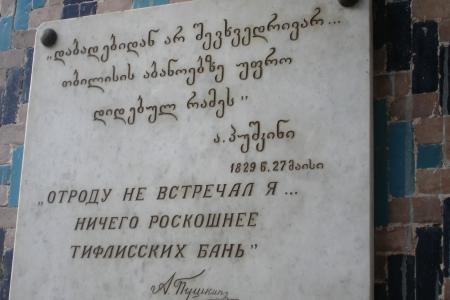 „დაბადებიდან არ შევხვედრივარ...
თბილისის აბანოებზე უფრო
დიდებულ რამეს"
ა. პუშკინი
1829 წ. 27 მაისი
„ОТРОДУ НЕ ВСТРЕЧАЛ Я ...
НИЧЕГО РОСКОШНЕЕ
ТИФЛИССКИХ БАНЬ"
А. Пушкин